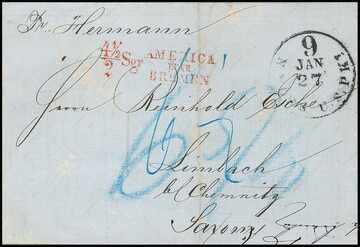 Pr Hermann
4½ Sgr
2
AMERICA
ÜBER
BREMEN
9
JAN
27
U.S. PKT.
Herrn Reinhold Esche
Limbach
b/ Chemnitz
Saxony